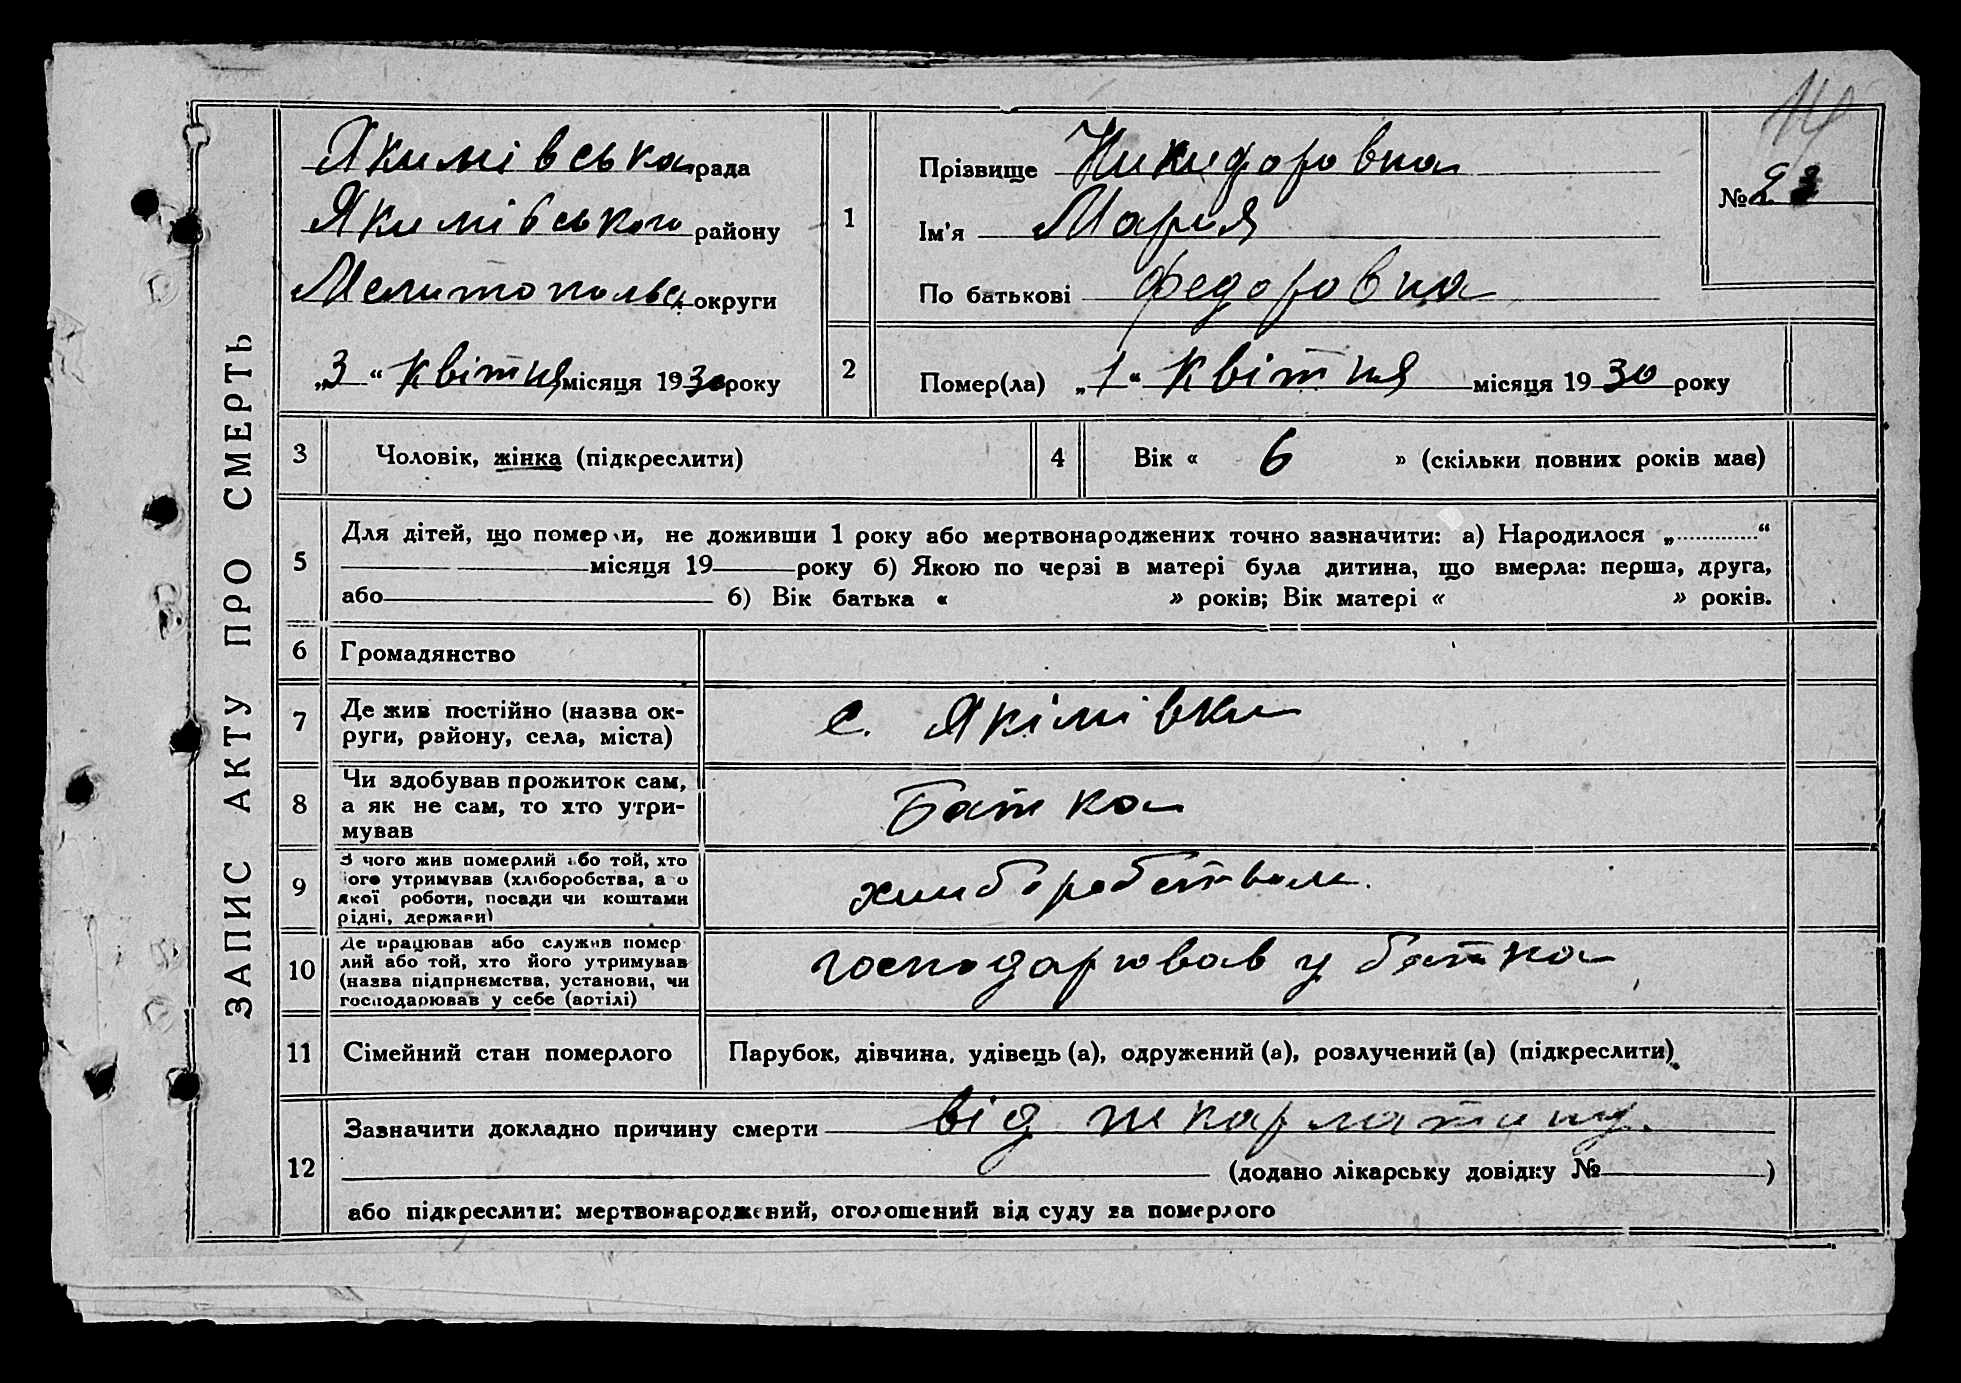 ЗАПИС АКТУ ПРО СМЕРТЬ
Якимівська рада
Якимівського району
Мелитопольс. округи
„3“ квітня місяця 1930 року
1
Прізвище Никифоровна
Ім'я Мария
По батькові Федоровна
№ 23
2
Помер(ла) „1“ квітня місяця 1930 року
3 Чоловік, жінка (підкреслити)
4 Вік « 6 » (скільки повних років має)
5
Для дітей, що померли, не доживши 1 року або мертвонароджених точно зазначити: а) Народилося „ “
місяця 19 року б) Якою по черзі в матері була дитина, що вмерла: перша, друга,
або б) Вік батька « » років; Вік матері « » років.
6 Громадянство
7
Де жив постійно (назва ок-
руги, району, села, міста)
с. Якімівки
8
Чи здобував прожиток сам,
а як не сам, то хто утри-
мував
Батка
9
З чого жив померлий або той, хто
його утримував (хліборобства, а о
якої роботи, посади чи коштами
рідні, держави)
хлиборобством.
10
Де працював або служив помер
лий або той, хто його утримував
(назва підприємства, установи, чи
господарював у себе (артілі)
господарював у батка
11 Сімейний стан померлого
Парубок, дівчина, удівець (а), одружений (а), розлучений (а) (підкреслити)
12
Зазначити докладно причину смерти від шкарлатину.
(додано лікарську довідку № )
або підкреслити: мертвонароджений, оголошений від суду за померлого